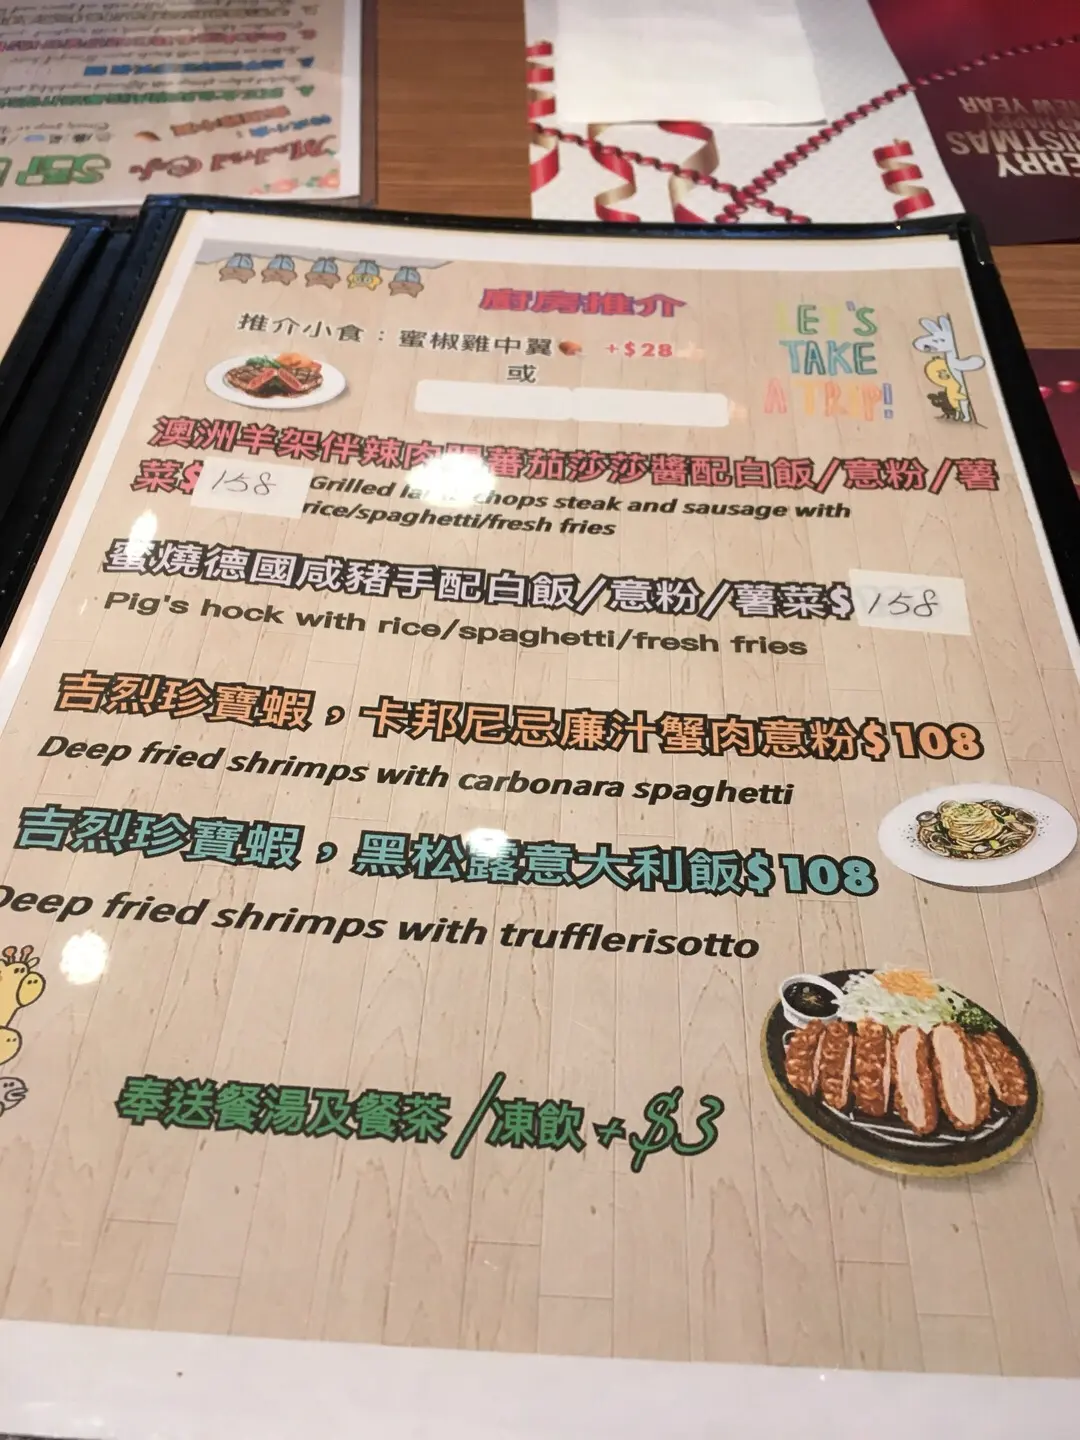 MERRY
CHRISTMAS
AND HAPPY
NEW YEAR
廚房推介
推介小食：蜜椒雞中翼 +$28
或
LET'S
TAKE
A TRIP!
澳洲羊架伴辣肉腸蕃茄莎莎醬配白飯/意粉/薯
菜$158
Grilled lamb chops steak and sausage with
rice/spaghetti/fresh fries
蜜燒德國咸豬手配白飯/意粉/薯菜$158
Pig's hock with rice/spaghetti/fresh fries
吉烈珍寶蝦，卡邦尼忌廉汁蟹肉意粉$108
Deep fried shrimps with carbonara spaghetti
吉烈珍寶蝦，黑松露意大利飯$108
Deep fried shrimps with trufflerisotto
奉送餐湯及餐茶/凍飲+$3